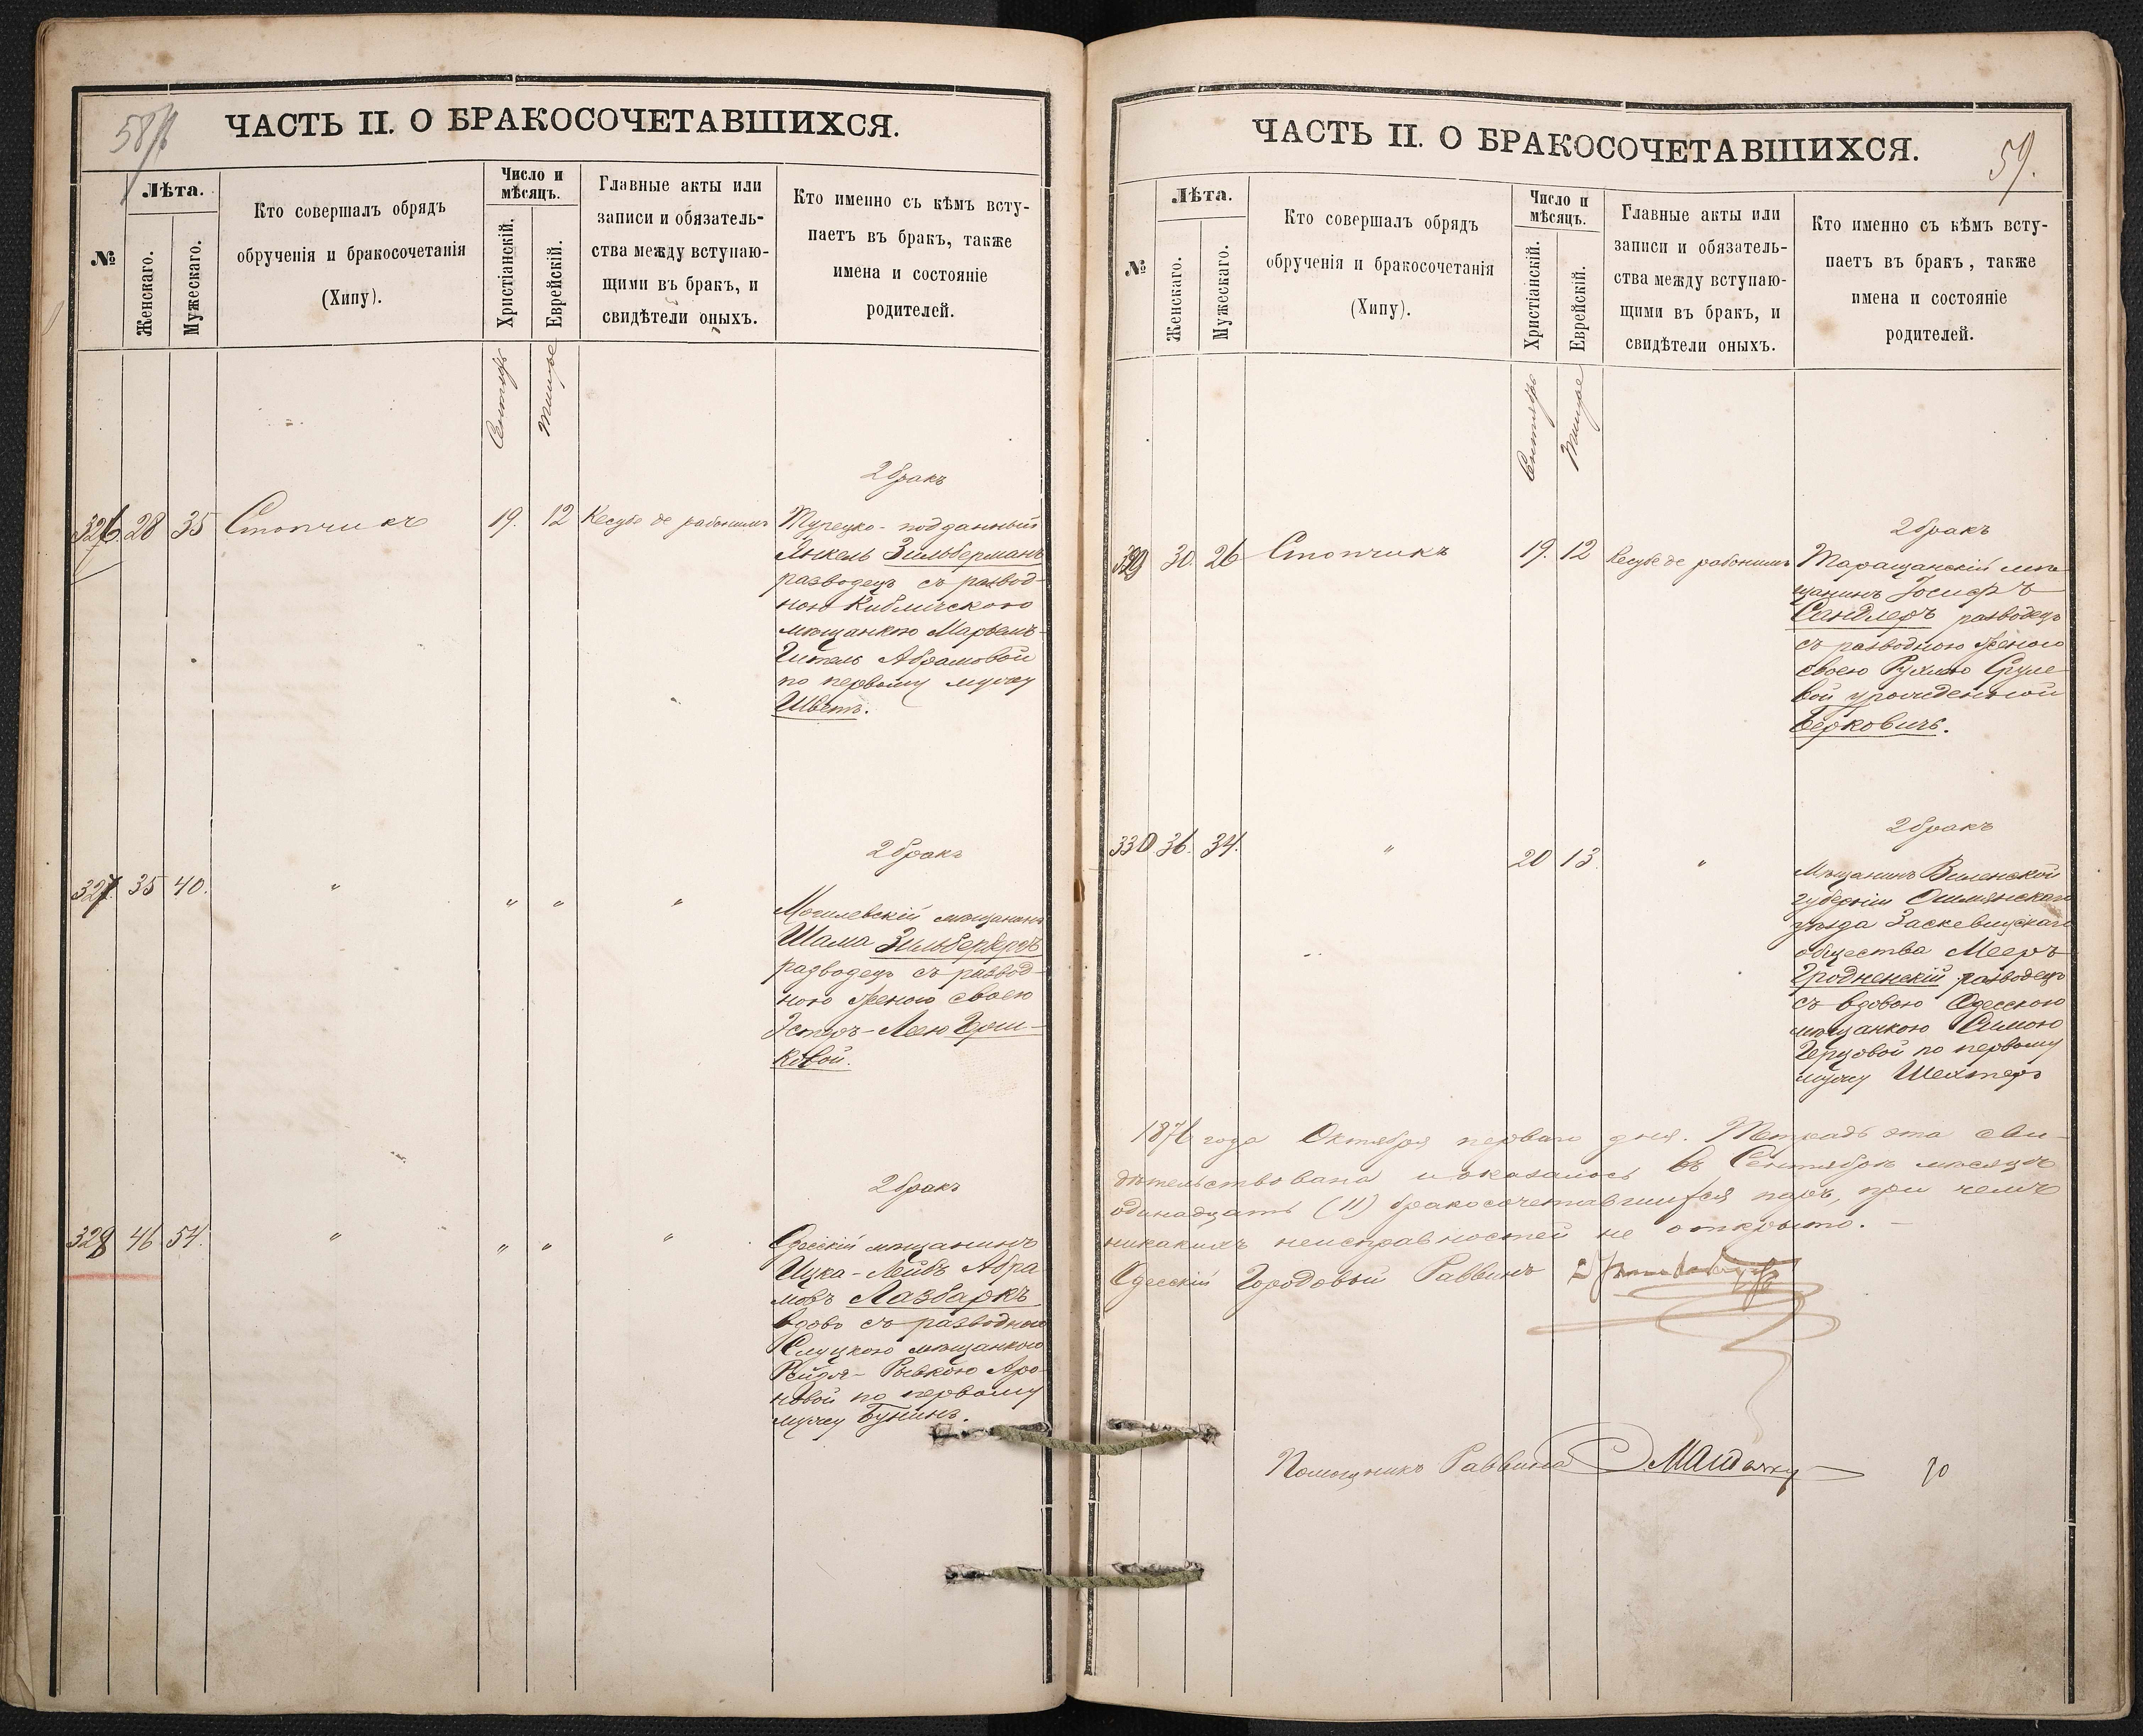 58
ЧАСТЬ II. О БРАКОСОЧЕТАВШИХСЯ.
№
Лѣта.
Женскаго.
Мужескаго.
Кто совершалъ обрядъ
обрученія и бракосочетанія
(Хипу).
Число и
мѣсяцъ.
Христіанскій.
Еврейскій.
Главные акты или
записи и обязатель-
ства между вступаю-
щими въ бракъ, и
свидѣтели оныхъ.
Кто именно съ кѣмъ всту-
паетъ въ бракъ, также
имена и состояніе
родителей.
Сентябрь
Тишре
2 бракъ
326. 28 35 Стопчикъ 19. 12 Кесубе де рабонимъ Турецко-подданный
Янкель Зильберманъ
разводецъ съ развод-
ною Кибличскою
мѣщанкою Марьемъ-
Гитель Абрамовой
по первому мужу
Швецъ.
2 бракъ
327. 35 40. " " " " Могилевскій мѣщанинъ
Шама Зильберберъ
разводецъ съ развод-
ною женою своею
Эстеръ-Леею Герш-
ковой.
2 бракъ
328 46 54. " " " " Одесскій мѣщанинъ
Ицка-Лейбъ Абра
мовъ Лазбаркъ
вдовъ съ разводною
Слуцкою мѣщанкою
Рейзя-Рывкою Аро-
новой по первому
мужу Бунинъ.
59.
ЧАСТЬ II. О БРАКОСОЧЕТАВШИХСЯ.
№
Лѣта.
Женскаго.
Мужескаго.
Кто совершалъ обрядъ
обрученія и бракосочетанія
(Хипу).
Число и
мѣсяцъ.
Христіанскій.
Еврейскій.
Главные акты или
записи и обязатель-
ства между вступаю-
щими въ бракъ, и
свидѣтели оныхъ.
Кто именно съ кѣмъ всту-
паетъ въ бракъ, также
имена и состояніе
родителей.
Сентябрь
Тишре
2 бракъ
329 30. 26 Стопчикъ 19. 12 Кесубе де рабонимъ Таращанскій мѣ-
щанинъ Іосифъ
Сандлеръ разводецъ
съ разводною женою
своею Рухлею Сруле
вой урожденной
Берковичъ.
2 бракъ
330 36. 34. " 20 13. " Мѣщанинъ Виленской
губерніи Ошмянскаго
уѣзда Заскевицкаго
общества Мееръ
Гродненскій разводецъ
съ вдовою Одесскою
мѣщанкою Симою
Герцовой по первому
мужу Шехтеръ
1876 года Октября перваго дня. Тетрадь эта сви-
дѣтельствована и оказалось въ Сентябрѣ мѣсяцѣ
одинадцать (11) бракосочетавшихся паръ, при чемъ
никакихъ неисправностей не открыто. -
Одесскій Городовой Раввинъ
Помощникъ Раввина